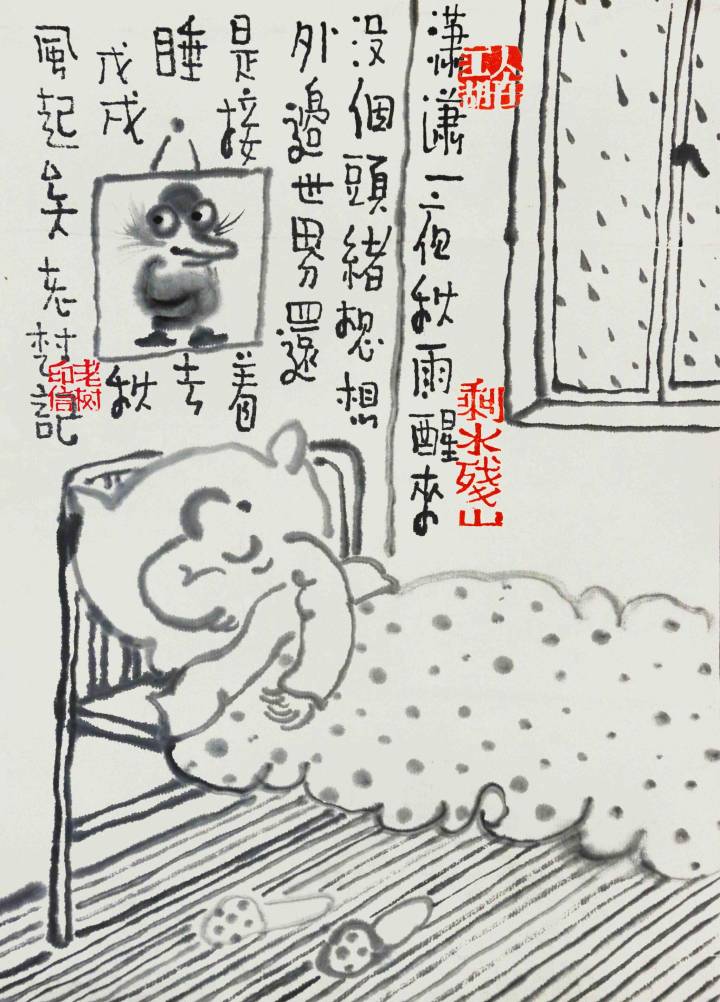 瀟瀟一夜秋雨醒來
沒個頭緒想想
外邊世界還
是接着
睡去
戊戌秋
風起矣老樹記
人在江湖
剩水殘山
老树印信